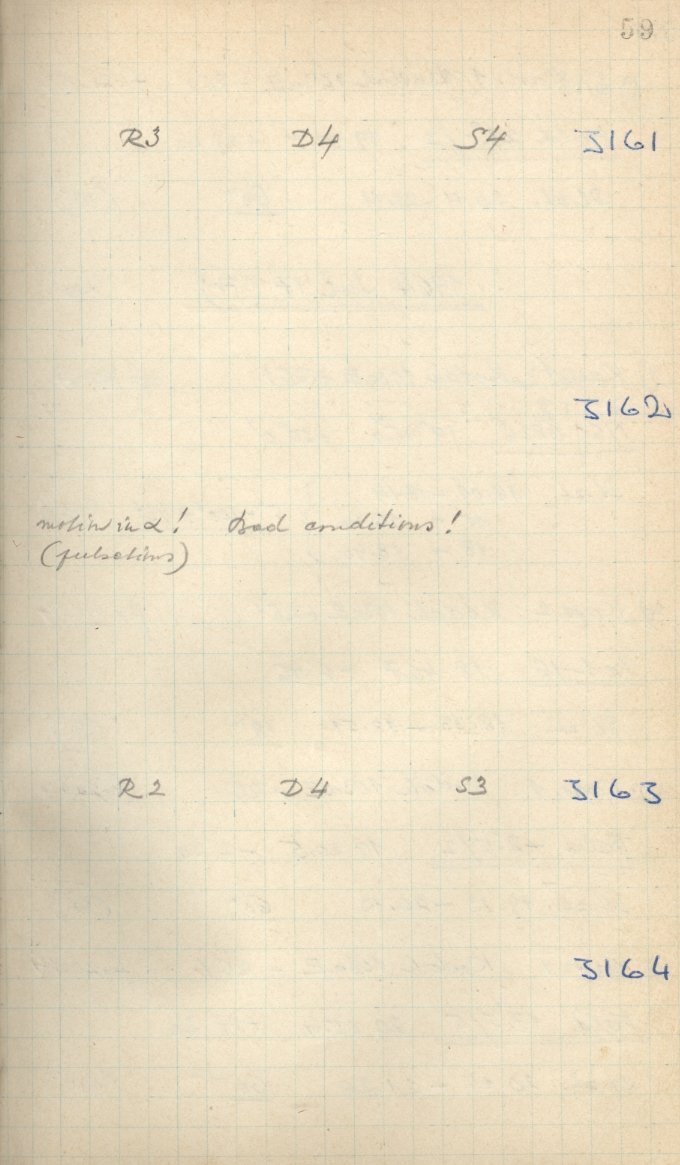 59
R3 D4 S4 3161
3162
motion in α! Bad conditions!
(pulsations)
R2 D4 S3 3163
3164